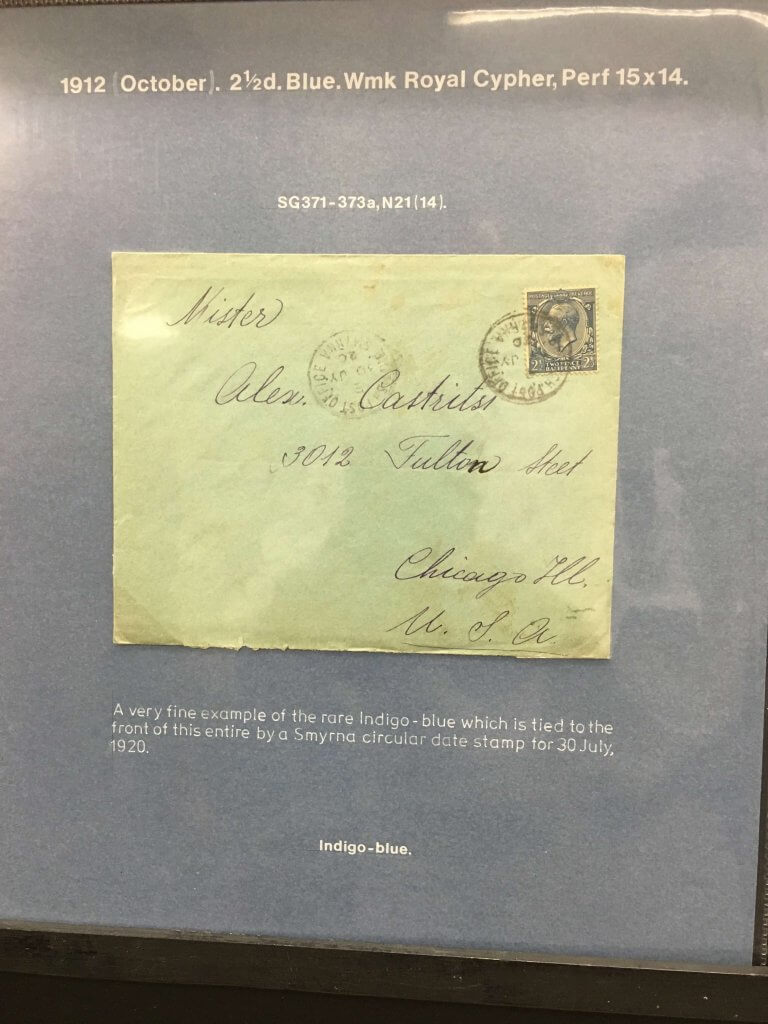 1912 (October). 2½d. Blue. Wmk Royal Cypher, Perf 15x14.
SG371-373a, N21(14).
Mister
POSTAGE REVENUE
POST OFFICE SMYRNA
30 JY 20
POST OFFICE SMYRNA
JY 20
2½ TWO PENCE HALFPENNY 2½
Alex.
3012 Fulton Steet
Chicago Ill.
U. S. A.
A very fine example of the rare Indigo-blue which is tied to the
front of this entire by a Smyrna circular date stamp for 30 July,
1920.
Indigo-blue.